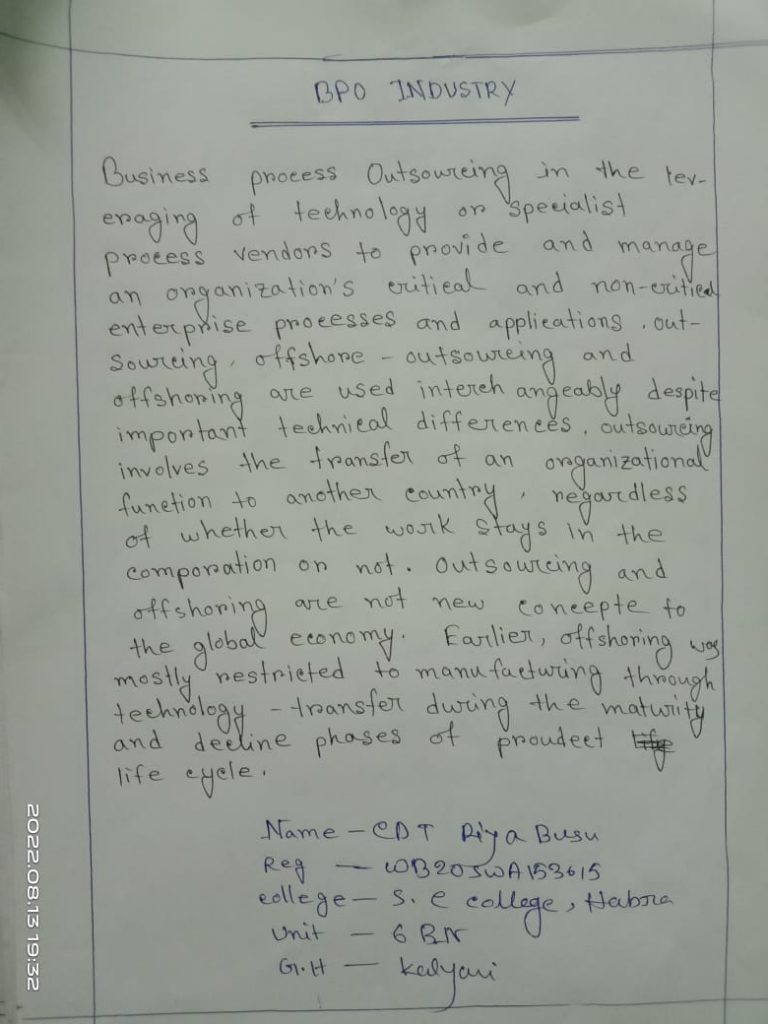 BPO INDUSTRY
Business process Outsourcing in the lev-
eraging of technology or specialist
process vendors to provide and manage
an organization's critical and non-critical
enterprise processes and applications. out-
sourcing, offshore - outsourcing and
offshoring are used interchangeably despite
important technical differences. outsourcing
involves the transfer of an organizational
function to another country, regardless
of whether the work stays in the
corporation or not. Outsourcing and
offshoring are not new concepte to
the global economy. Earlier, offshoring was
mostly restricted to manufacturing through
technology - transfer during the maturity
and decline phases of proudect life
life cycle.
Name - CDT Riya Busu
Reg - WB20SWA153615
college - S. C college, Habra
Unit - 6 BN
G.H - Kalyani
2022.08.13 19:32